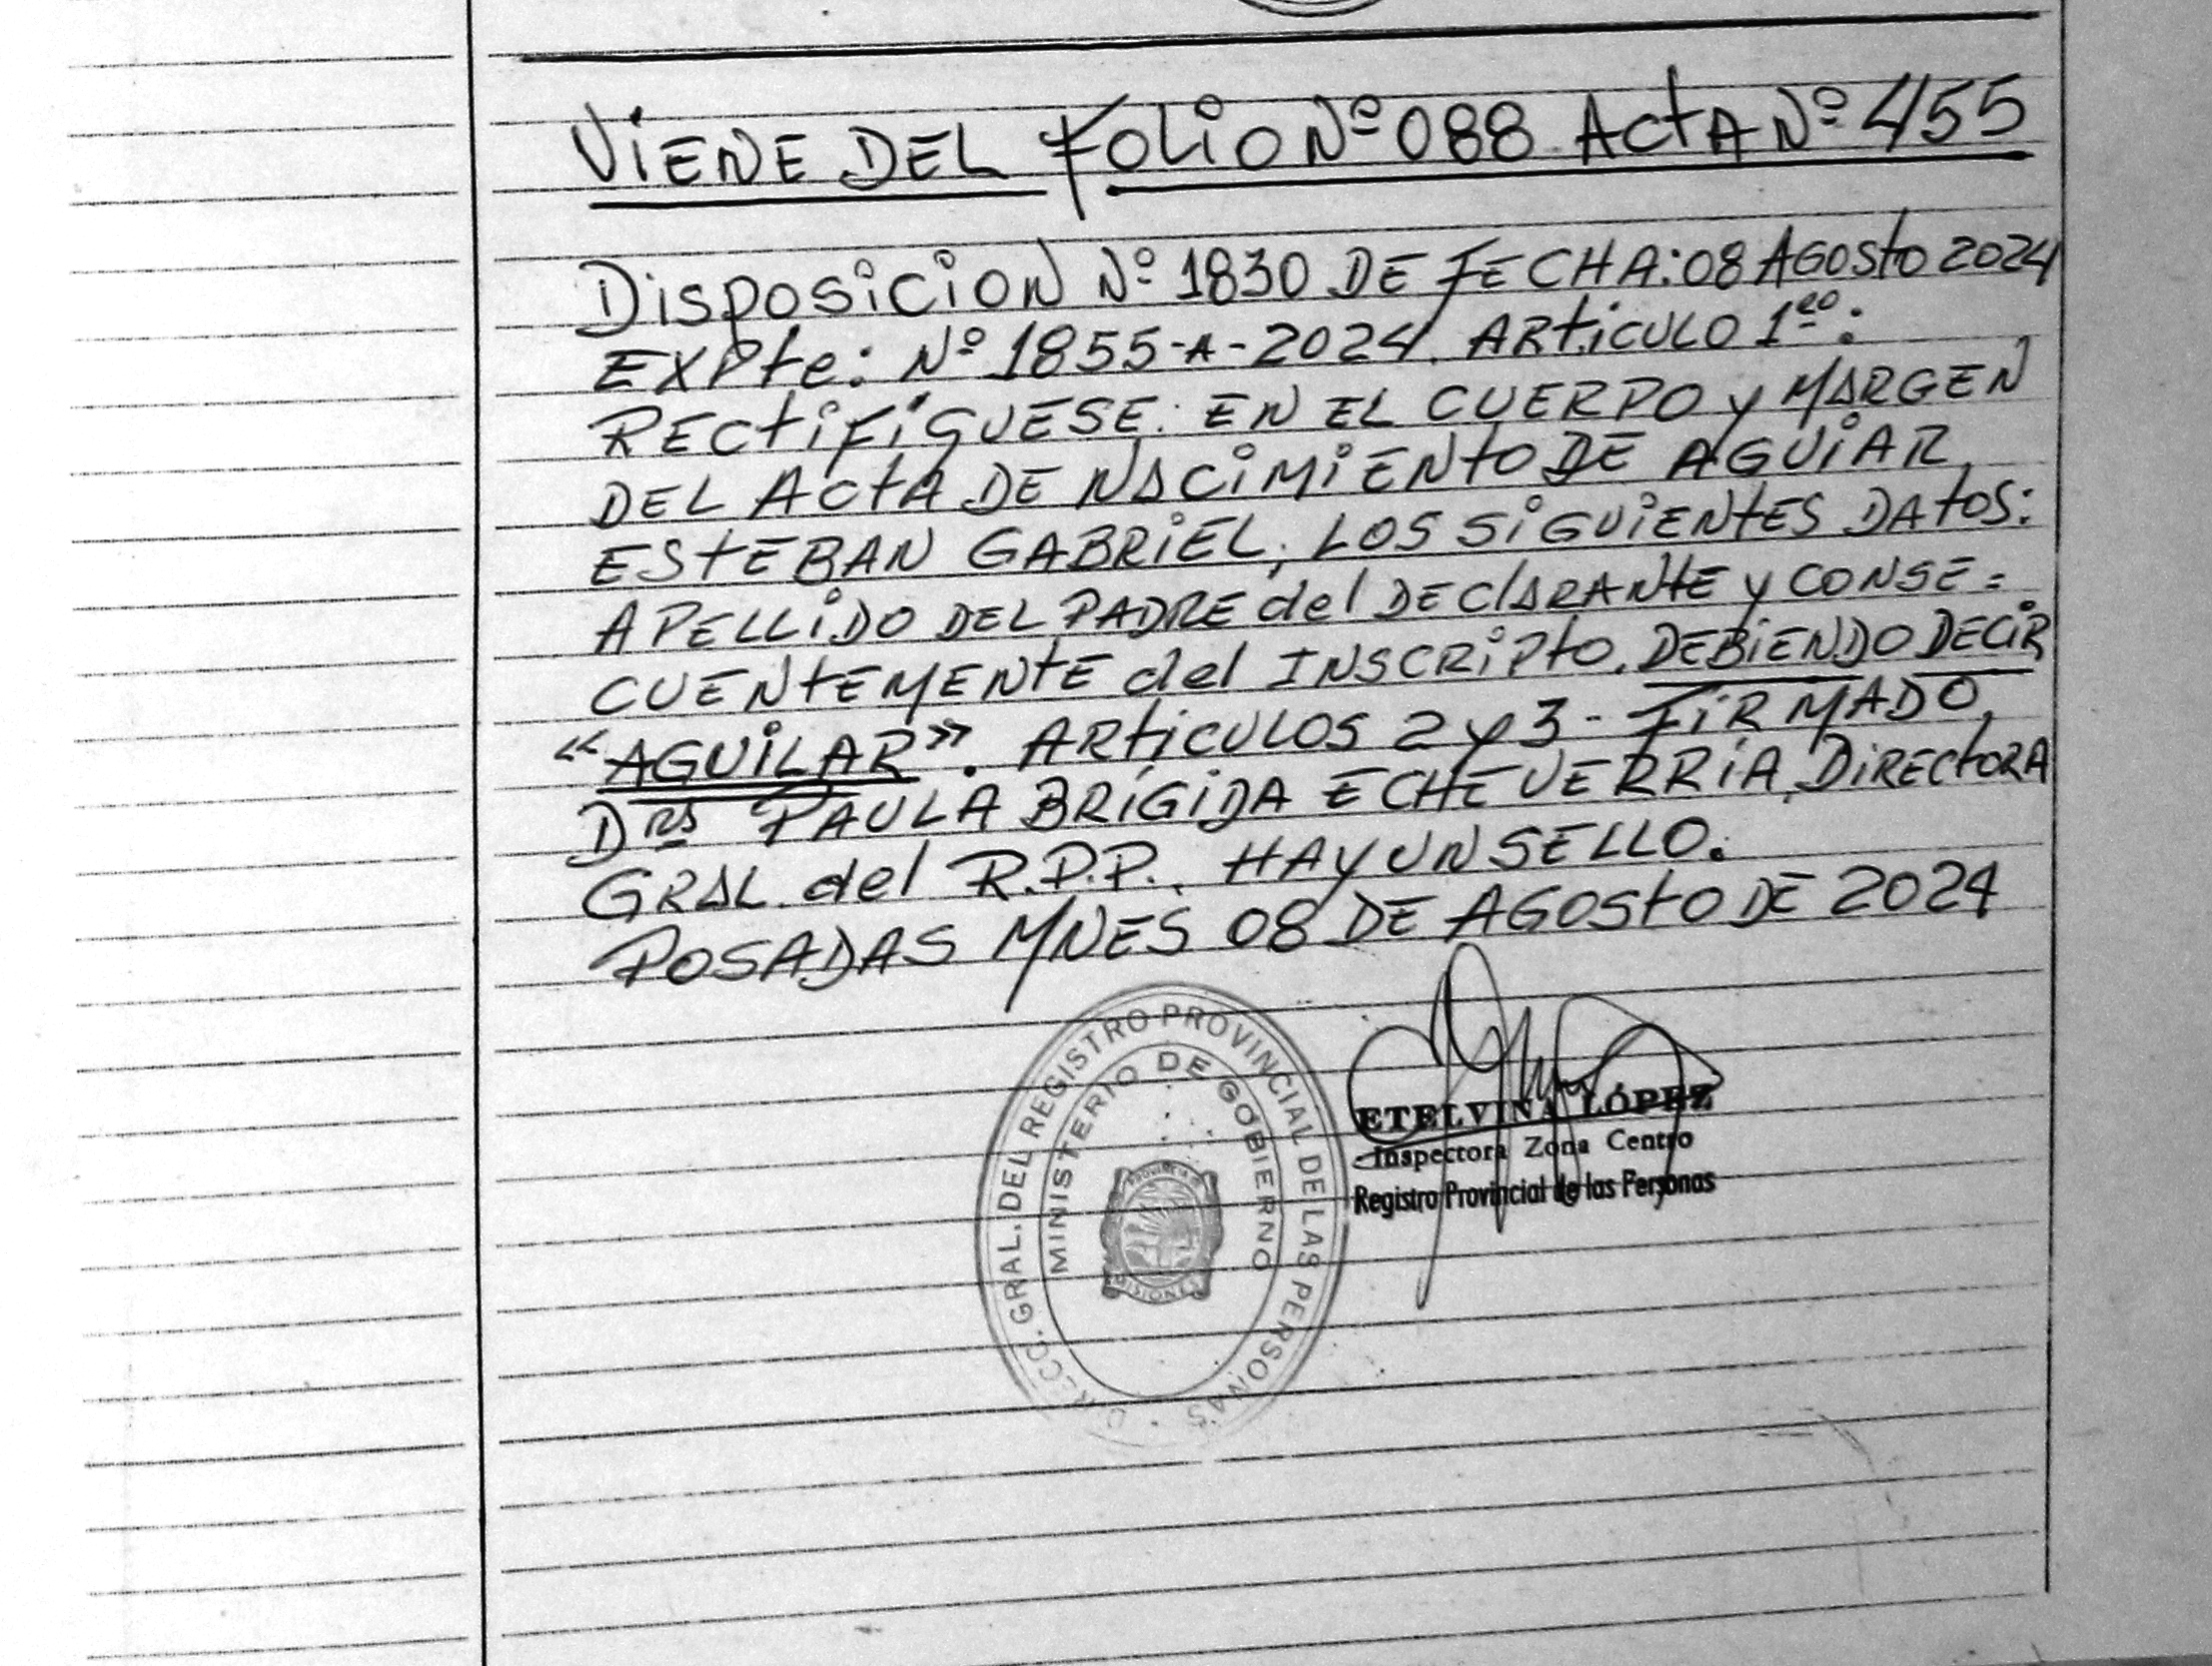 VIENE DEL FOLIO Nº 088 ACTA Nº 455
DISPOSICION Nº 1830 DE FECHA: 08 AGOSTO 2024
EXPte: Nº 1855-A-2024. ARTICULO 1ero:
RECTIFIQUESE: EN EL CUERPO y MARGEN
DEL ACTA DE NACIMIENTO DE AGUIAR,
ESTEBAN GABRIEL, LOS SIGUIENTES DATOS:
APELLIDO DEL PADRE del DECLARANTE y CONSE=
CUENTEMENTE del INSCRIPTO. DEBIENDO DECIR
"AGUILAR". ARTICULOS 2 y 3 - FIRMADO,
Dra PAULA BRIGIDA ECHEVERRIA, DIRECTORA
GRAL. del R.P.P.. HAY UN SELLO.
POSADAS MNES 08 DE AGOSTO DE 2024
DIRECC. GRAL. DEL REGISTRO PROVINCIAL DE LAS PERSONAS
MINISTERIO DE GOBIERNO
PROVINCIA DE
MISIONES
ETELVINA LÓPEZ
Inspectora Zona Centro
Registro Provincial de las Personas